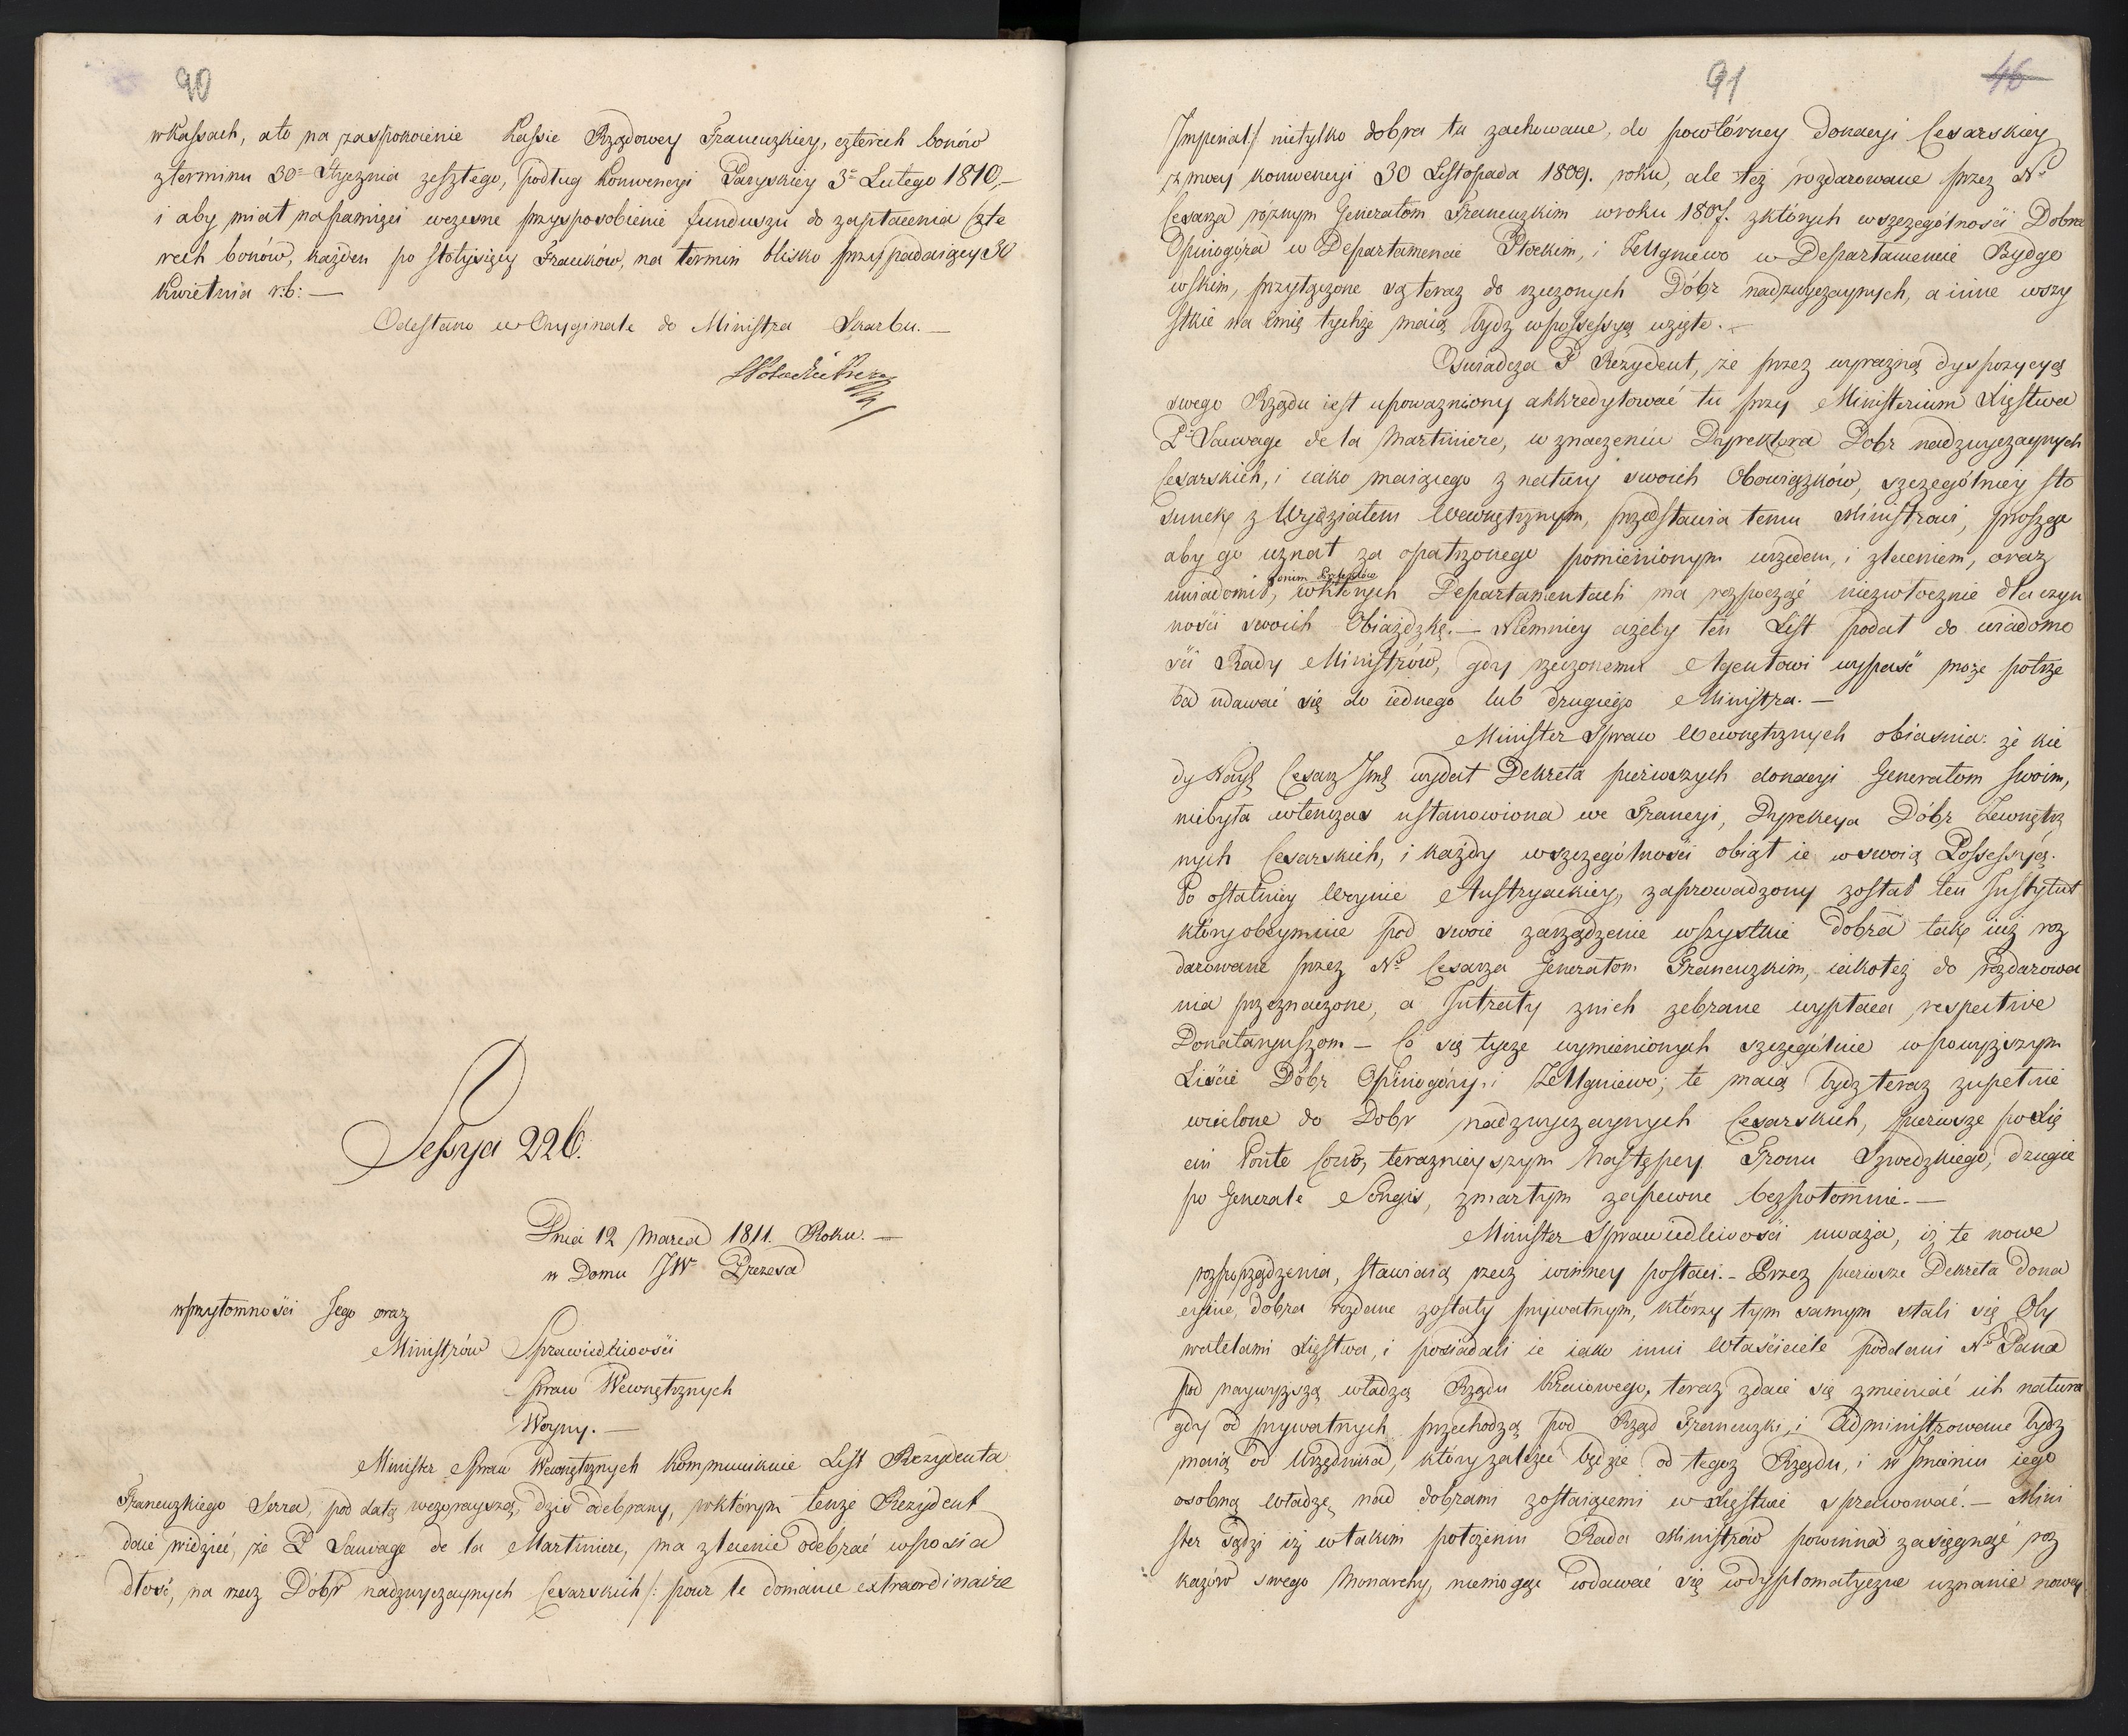 90
w Kassach, a to na zaspokoienie Kassie Rządowey Francuzkiey, czterech bonów
z terminu 30º Stycznia zeszłego, podług Konwencyi Paryskiey 3º Lutego 1810,—
i aby miał na pamięci wczesne przysposobienie funduszu do zapłacenia Czte
rech bonów, każden po sto tysięcy Franków, na termin blisko przypadaiący 30
Kwietnia r: b: —
Odesłano w Oryginale do Ministra Skarbu. —
Sessya 226.
Dnia 12 Marca 1811. Roku. —
w Domu JW Prezesa
w przytomności Jego oraz
Ministrów Sprawiedliwości
Spraw Wewnętrznych
Woyny. —
Minister Spraw Wewnętrznych kommunikuie List Rezydenta
Francuzkiego Serra, pod datą wczorayszą, dziś odebrany, w którym tenże Rezydent
daie widzieć, że P Sauvage de la Martiniere, ma zlecenie odebrać w posia
dłość, na rzecz Dóbr nadzwyczaynych Cesarskich /: pour le domaine extraordinaire
91
46
Imperial :/ nietylko dobra tu zachowane, do powtórney donacyi Cesarskiey
z mocy konwencyi 30 Listopada 1809. roku, ale też rozdarowane przez Nº
Cesarza różnym Generałom Francuzkim w roku 1807. z których w szczególności Dobra
Opinogóra w Departamencie Płockim, i Zelgniewo w Departamencie Bydgo
wskim, przyłączone są teraz do rzeczonych Dóbr nadzwyczaynych, a inne wszy
stkie na imię tychże maią bydz w possessyą wzięte. —
Oswiadcza P Rezydent, że przez wyraźną dyspozycyą
swego Rządu iest upoważniony akkredytować tu przy Ministerium Xięstwa
P. Sauvage de la Martiniere, w znaczeniu Dyrektora Dobr nadzwyczaynych
Cesarskich, i iako maiącego z natury swoich Obowiązków, szczególniey sto
sunek z Wydziałem Wewnętrznym, przedstawia temu Ministrowi, prosząc
aby go uznał za opatrzonego pomienionym urzędem, i zleceniem, oraz
uwiadomił, onim Prefektów w których Departamentach ma rozpocząć niezwłocznie dla czyn
ności swoich Obiażdzkę. — Niemniey ażeby ten List podał do wiadomo
ści Rady Ministrów, gdy rzeczonemu Agentowi wypaść może potrze
ba udawać się do iednego lub drugiego Ministra. —
Minister Spraw Wewnętrznych obiasnia: że kie
dy Nayś Cesarz Jmć wydał Dekreta pierwszych donacyi Generałom swoim,
niebyła wtenczas ustanowiona we Francyi, Dyrekcya Dóbr Zewnętrz
nych Cesarskich, i każdy w szczególności obiął ie w swoią Possessyą.
Po ostatniey Woynie Austryackiey, zaprowadzony został ten Instytut
który obeymuie pod swoie zarządzenie wszystkie dobra tak iuż roz
darowane przez Nº Cesarza Generałom Francuzkim, iako też do rozdarowa
nia przeznaczone, a Intraty z nich zebrane wypłaca respective
Donataryuszom — Co się tycze wymienionych szczególnie w powyższym
Liście Dóbr Opinogóry i Zelgniewo; te maią bydz teraz zupełnie
wcielone do Dobr nadzwyczaynych Cesarskich, pierwsze po Xię
ciu Ponte Corvo, teraznieyszym Następcy Tronu Szwedzkiego, drugie
po Generale Songis, zmarłym zapewne bezpotomnie. —
Minister Sprawiedliwości uważa, iż te nowe
rozporządzenia, stawiaią rzecz w inney postaci. — Przez pierwsze Dekreta dona
cyine, dobra rozdane zostały prywatnym, którzy tym samym stali się Oby
watelami Xięstwa, i posiadali ie iako inni Właściciele poddani Nº Pana
pod naywyższą władzą Rządu Kraiowego, teraz zdaie się zmieniać ich natura
gdy od prywatnych przechodzą pod Rząd Francuzki, i Administrowane bydz
maią od Urzędnika, który zależeć będzie od tegoż Rządu, i w Jmieniu iego
osobną władzę nad dobrami zostaiącemi w Xięstwie sprawować. — Mini
ster sądzi iż w takim położeniu Rada Ministrów powinna zasięgnąć roz
kazów swego Monarchy, niemogąc wdawać się w dyplomatyczne uznanie nowey